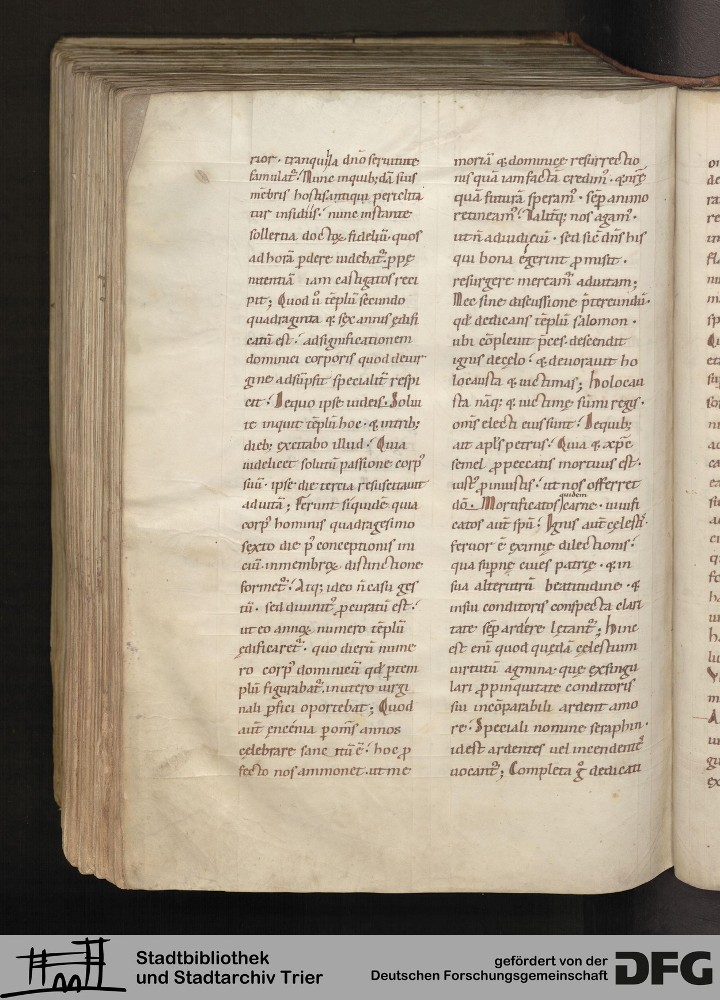 rior · tranquilla dn̄o seruitute
famulat᷒. Nunc in quib; dā suis
mēbris hostis antiqui periclita
tur insidiis · nunc instante
sollertia doctoꝝ fideliū · quos
ad horā ꝑdere uidebat᷒ · ꝑ pę
nitentiā iam castigatos reci
pit; Quod ū tēplū secundo
quadraginta & sex annis ędifi
catū est · ad significationem
dominici corporis quod de uir
gine adsūpsit specialit̄ respi
cit · De quo ipse iudeis · Solui
te inquit tēplū hoc · & in trib;
dieb; excitabo illud · Quia
uidelicet solutū passione corp᷒
suū · ipse die tercia resuscitauit
ad uitā; Ferunt siquidē quia
corp᷒ hominis quadragesimo
sexto die p᷒ conceptionis ini
ciū in membroꝝ distinctione
formet᷒ · Atq; ideo n̄ casu ges
tū · sed diuinit᷒ ꝓcuratū est ·
ut eo annoꝝ numero tēplū
ędificaret᷒ · quo dierū nume
ro corp᷒ dominicū qd̄ ꝑ tem
plū figurabat᷒ · in utero uirgi
nali ꝑfici oportebat; Quod
aut̄ encenia ꝑ om̄s annos
celebrare sanc
hoc ꝓ
fecto nos ammonet · ut me
moriā & dominicę resurrectio
nis quā iam factā credim᷒ · & nr̄ę
quā futurā speram᷒ · sēp animo
retineam᷒ · Talitq; nos agam᷒ ·
ut n̄ ad iudiciū · sed sic̄ dn̄s his
qui bona egerint ꝓmisit ·
resurgere meream᷒ ad uitam;
Nec sine discussione p̄tereundū ·
qd̄ dedicans tēplū salomon ·
ubi cōpleuit p̄ces · descendit
ignis de cęlo · & deuorauit ho
locausta & uictimas; Holocau
sta nāq; & uictimę sūmi regis ·
om̄s electi eius sunt · De quib;
ait apl̄s petrus · Quia & xp̄c
semel ꝓ peccatis mortuus est ·
iust᷒ ꝓ iniustis · ut nos offerret
dō · Mortificatos quidem carne · uiuifi
catos aut̄ spū · Ignis aut̄ cęlestis ·
feruor ē eximię dilectionis ·
qua supnę ciues patrię · & in
sua alterutrū beatitudine · &
in sui conditoris conspecta clari
tate sēp ardere lętant᷒; Hinc
est enī quod quędā cęlestium
uirtutū agmina · que ex singu
lari ꝓpinquitate conditoris
sui incōparabili ardent amo
re · Speciali nomine seraphin ·
id est ardentes uel incendentes
uocant᷒; Completa g᷒ dedicati
Stadtbibliothek
und Stadtarchiv Trier
gefördert von der
Deutschen Forschungsgemeinschaft
DFG